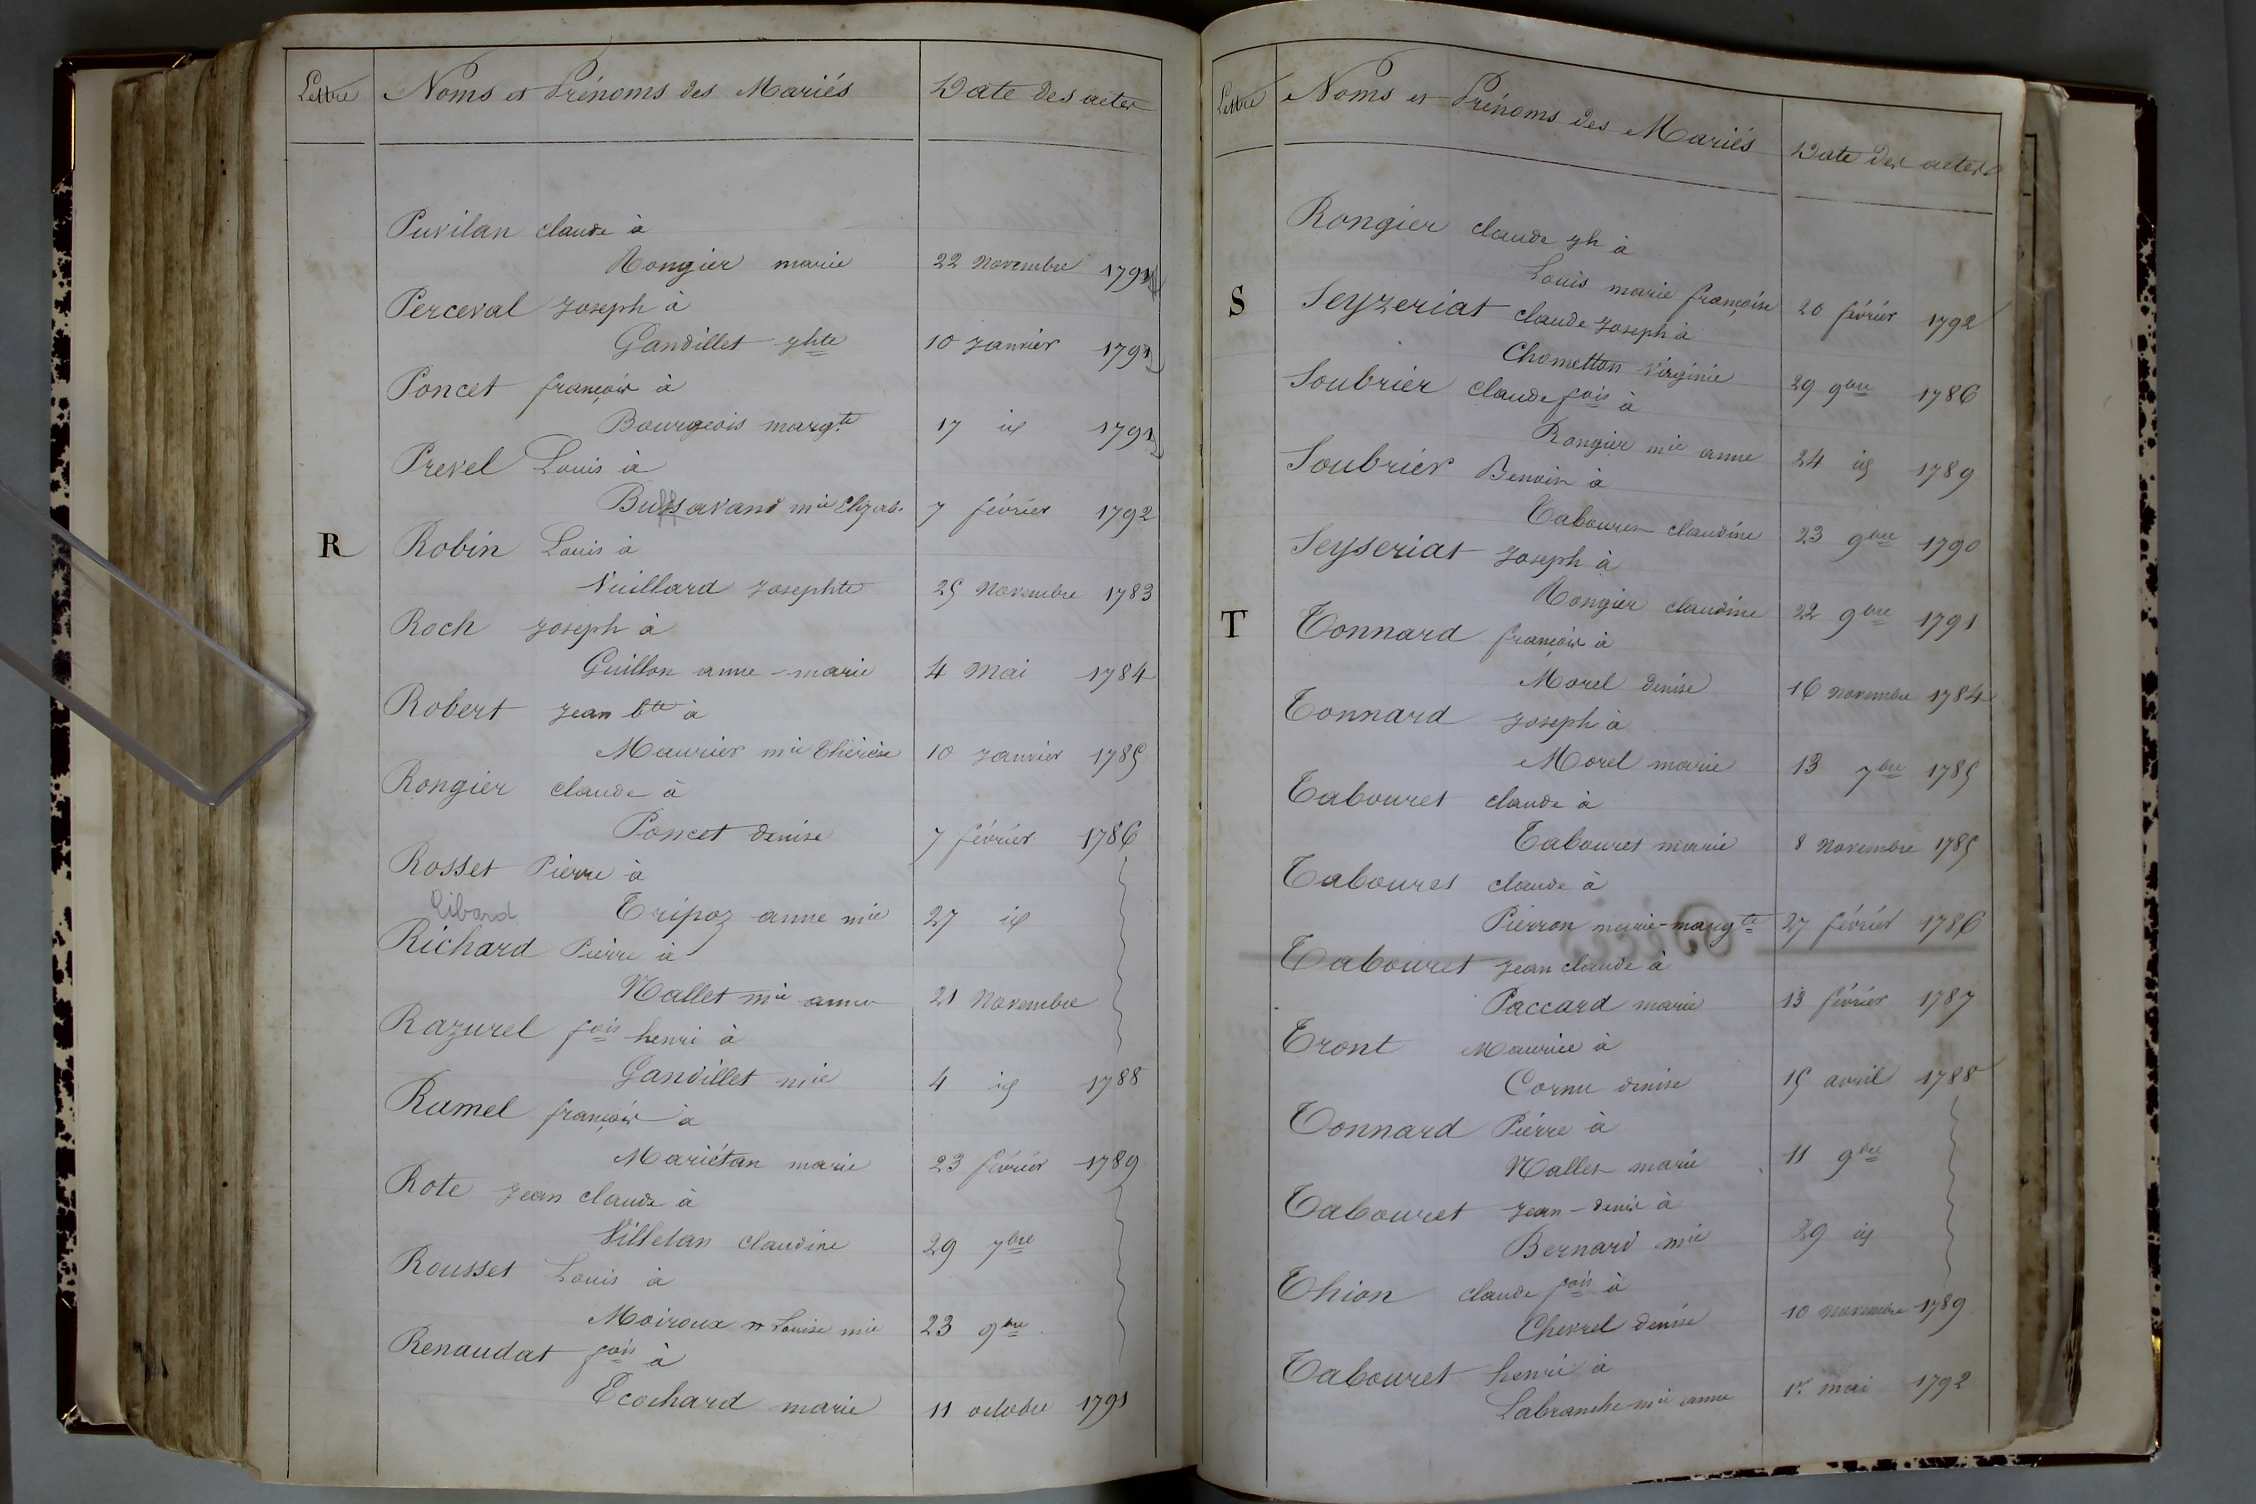 Lettre Noms et Prénoms des Mariés Date des actes
Puvilan claude à
Rongier marie 22 novembre 1791
Perceval joseph à
Gandillet jhte 10 janvier 1791
Poncet françois à
Bourgeois margte 17 id 1791
Prevel Louis à
mie Elizab. 7 février 1792
R Robin Louis à
Vuillard josephte 25 novembre 1783
Roch joseph à
Guillon anne-marie 4 mai 1784
Robert jean bte à
Maurier mie thérèse 10 janvier 1785
Rongier claude à
Poncet denise 7 février 1786
Rosset Pierre à
Libard
Tripoz anne mie 27 id
Richard Pierre à
Nallet mie anne 21 novembre
Razurel fois henri à
Gandillet mie 4 id 1788
Ramel françois à
Mariétan marie 23 février 1789
Rote jean claude à
Villelan claudine 29 7bre
Rousset Louis à
Moiroux Louise mie 23 9bre
Renaudat fois à
Ecochard marie 11 octobre 1791
Lettre Noms et Prénoms des Mariés Date des actes
Rongier claude jh à
Louis marie françoise 20 février 1792
S Seyzeriat claude joseph à
Chometton Virginie 29 9bre 1786
Soubrier claude fois à
Rongier mie anne 24 id 1789
Soubrier Benoin à
Tabouret claudine 23 9bre 1790
Seyseriat joseph à
Rongier claudine 22 9bre 1791
T Tonnard françois à
Morel denise 16 novembre 1784
Tonnard joseph à
Morel marie 13 7bre 1785
Tabouret claude à
Tabouret marie 8 novembre 1785
Tabouret claude à
Pierron marie-margte 27 février 1786
Tabouret jean claude à
Paccard marie 13 février 1787
Tront Maurice à
Cornu denise 15 avril 1788
Tonnard Pierre à
Nallet marie 11 9bre
Tabouret jean-denis à
Bernard mie 29 id
Thion claude fois à
Chevrel denise 10 novembre 1789
Tabouret henri à
Labranche mie anne 1r mai 1792